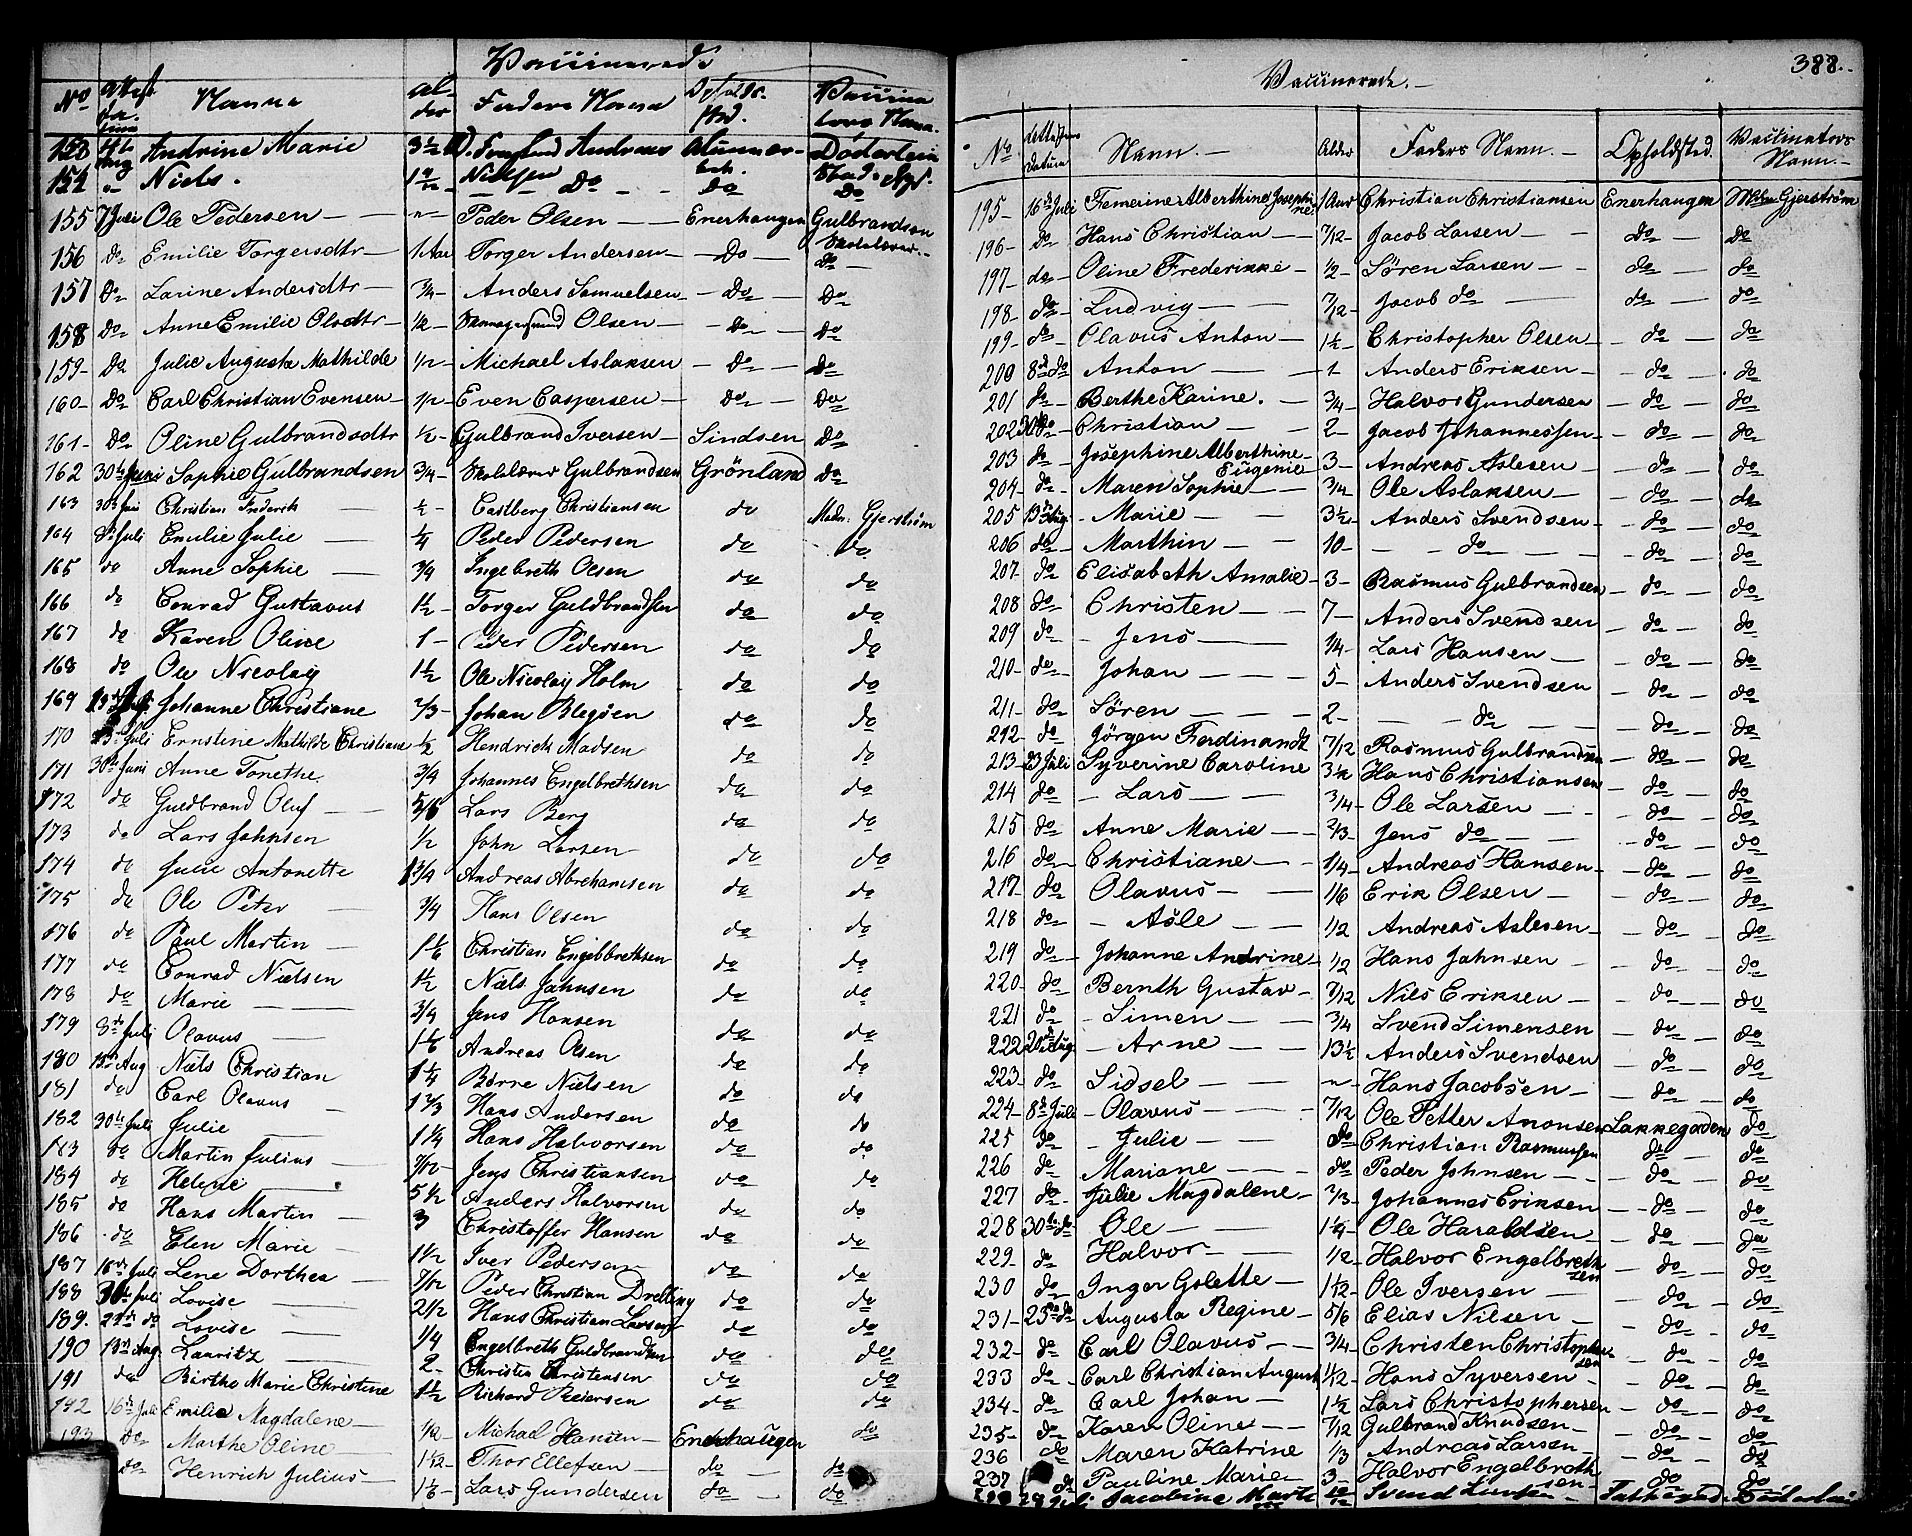 Vaccinerede
No Navne Alder Faders Navne Opholdssted Vaccina
153 Andrine Marie 3½ Andreas Døderlein
154 " Niels. Do Do Do
155 7 Juli Ole Pedersen — "— Peder Olsen — Enerhaugen Gulbrandsen
156 Do Emilie Torgersdtr — 1 Aar Torger Andersen — Do — Do —
157 Do Larine Andersdtr — ¾ Anders Samuelsen — Do — Do
158 Do Anne Emilie Olsdtr — ½ Olsen — Do — Do
159 Do Julie Augusta Mathilde ½ Michael Aslaksen — Do — Do
160 Do Carl Christian Evensen — ½ Even Caspersen — Do — Do
161 Do Oline Gulbrandsdtr ½ Gulbrand Iversen — Sindsen Do
162 30te Juni Sophie Gulbrandsen ¾ Skolelærer Gulbrandsen Grönland Do
163 30 Juni Christian Frederik ½ Castberg Christiansen do Mdm: Gjerstrøm
164 8de Juli Emilie Julie — ¼ Peder Pedersen do do
165 do Anne Sophie — ¾ Ingebreth Olsen do do
166 do Conrad Gustavus 1½ Torger Guldbrandsen do do
167 do Karen Oline 1 — Peder Pedersen do do
168 do Ole Nicolay 1½ Ole Nicolay Holm do do
169 Johanne Christiane ⅔ Johan Blegsen do do
170 23 Juli Ernstine Mathilde Christiane ½ Hendrick Madsen do do
171 30te Juni Anne Tonethe ¾ Johannes Engelbrethsen do do
172 do Guldbrand Oluf — 5/6 Lars Berg do do
173 do Lars Johnsen ½ John Larsen do do
174 do Julie Antonette 1¾ Andreas Abrehamsen do do
175 do Ole Peter — ¾ Hans Olsen do do
176 do Paul Martin — 1⅙ Christian Engelbrethsen do do
177 do Conrad Nielsen 1½ Niels Johnsen do do
178 do Marie — ¾ Jens Hansen do do
179 8de Juli Olavus — 1⅙ Andreas Olsen do do
180 13de Aug Niels Christian 1¼ Børre Nielsen do do
181 do Carl Olavus 1⅔ Hans Andersen do do
182 30te Juli Julie — 1¼ Hans Halvorsen do do
183 do Martin Julius — 7/12 Jens Christiansen do do
184 do Helene — 5½ Anders Halvorsen do do
185 do Hans Martin — 3 Christoffer Hansen do do
186 do Elen Marie — 1½ Iver Pedersen do do
187 16de Juli Lene Dorthea — 7/12 Peder Christian do do
188 30te Juli Lovise — 2½ Hans Christian Larsen do do
189. do Lovise — ¼ Engelbreth Guldbrandsen do do
190 13de Aug. Lauritz — 2 — Christen Christensen do do
191 do Birthe Marie Christine 1½ Richard Pedersen do do
192 16de Juli Emilie Magdalene — ½ Michael Hansen — Enerhaugen do
193 do Marthe Oline 1 1/12 Thor Ellefsen — do — do
do Henrich Julius — 1⅙ Lars Gundersen do — do
388.
Vaccinerede. —
No Attestens datum Navn. — Alder Faders Navn. — Opholdsted. Vaccinators Navn. —
195 — 16de Juli Femerine Alberthine Josephine 1 Aar Christian Christiansen Enerhaugen Mdm Gjerstrøm
196 — do Hans Christian — 7/12 Jacob Larsen — do — do
197 — do Oline Frederikke — ½ Sören Larsen — do — do
198 — do Ludvig — 7/12 Jacob do — do — do
199 — do Olavus Anton — 1½ Christopher Olsen — do — do
200 8de do Anton — 1 Anders Eriksen — do — do
201 do Berthe Karine. — ¾ Halvor Gundersen — do — do
202 do Christian — 2 — Jacob Johannessen — do — do
203 do Josephine Alberthine Eugenie 3 — Andreas Aslesen — do — do
204 — do Maren Sophie — ¾ Ole Aslaksen — do — do
205 13de Aug — Marie — 3½ Anders Svendsen — do — do
206 do — Marthin — 10 — — do — — do — do
207 — do Elisabeth Amalie — 3 — Rasmus Gulbrandsen — do — do
208 do Christen — 7 — Anders Svendsen — do — do
209 do — Jens — ¾ Lars Hansen — do — do
210 — do — Johan — 5 — Anders Svendsen — do — do
211 — do Sören — 2 — — do — — do — do
212 — do Jörgen Ferdinandt 7/12 Rasmus Gulbrandsen — do — do
213 — 23 Juli Syverine Caroline 3½ Hans Christiansen — do — do
214 do — Lars — ¾ Ole Larsen — do — do
215 do Anne Marie — ⅔ Jens do — do — do
216 do Christiane — ¼ Andreas Hansen — do — do
217 — do Olavus — 1/6 Erik Olsen — do — do
218 do — Asle — ½ Andreas Aslesen — do — do
219 do Johanne Andrine — ½ Hans Johnsen — do — do
220 — do Bernth Gustav — 7/12 Nils Eriksen — do — do
221 do — Simen — ¾ Svend Simensen — do — do
222 20de Aug. — Arne — 13½ Anders Svendsen — do — do
223 — do — Sidsel — " — Hans Jacobsen — do — do
224 — 8de Juli — Olavus — 7/12 Ole Petter Anonsen Lakkegaden do
225 do — Julie — do Christian Rasmussen do do
226 do Mariane — do Peder Johnsen — do — do
227 do Julie Magdalene — ⅔ Johannes Eriksen — do — do
228 30te do Ole — 1¼ Ole Haraldsen — do — do
229 — do Halvor — ½ Halvor Engelbrethsen — do — do
230 do Inger Golette — 1 1/12 Ole Iversen — do — do
231 — 25de do Augusta Regine — 5/6 Elias Nilsen — do — do
232 — do Carl Olavus — ¾ Christen Christophersen — do — do
233 — do Carl Christian August 1/12 Hans Syversen — do — do
234 — do — Carl Johan — 1½ Lars Christophersen — do — do
235 — do Karen Oline — 7/12 Gulbrand Knudsen — do — do
236 do Maren Katrine ⅓ Andreas Larsen — do — do
237 do Pauline Marie — 3 — Halvor Engelbrethsen — do do
Jacobine Marte Svend